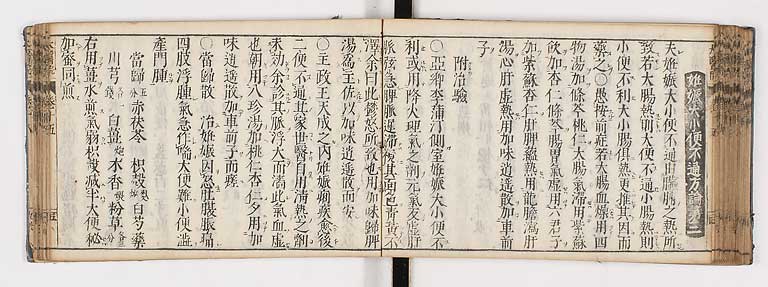 妊娠大小便不通方論第二
夫妊娠大小便不通由臟腑之熱所
致若大腸熱則大便不通小腸熱則
小便不利大小腸俱熱更推其因而
藥之〇愚按前症若大腸血燥用四
物湯加條芩桃仁大腸氣滯用紫蘇
飲加杏仁條芩腸胃氣虛用六君子
加紫蘇杏仁肝脾蘊熱用龍膽瀉肝
湯心肝虛熱用加味逍遙散加車前
子
附治驗
〇亞卿李蒲汀側室妊娠大小便不
利或用降火理氣之劑元氣反虛肝
脈弦急脾脈遲滯視其面色青黃不
澤余曰此鬱怒所致也用加味歸脾
湯為主佐以加味逍遙散而安
〇主政王天成之內妊娠痢疾愈後
二便不通其家世醫自用清熱之劑
未効余診其脈浮大而濇此氣血虛
也朝用八珍湯加桃仁杏仁夕用加
味逍遙散加車前子而瘥
〇當歸散 治妊娠因怒肝腹脹痛
四肢浮腫氣急作喘大便難小便澁
產門腫
當歸 赤茯苓 枳殼 白芍藥
川芎 白薑 木香 粉草
右用薑水煎氣弱枳殼減半大便秘
加蜜同煎